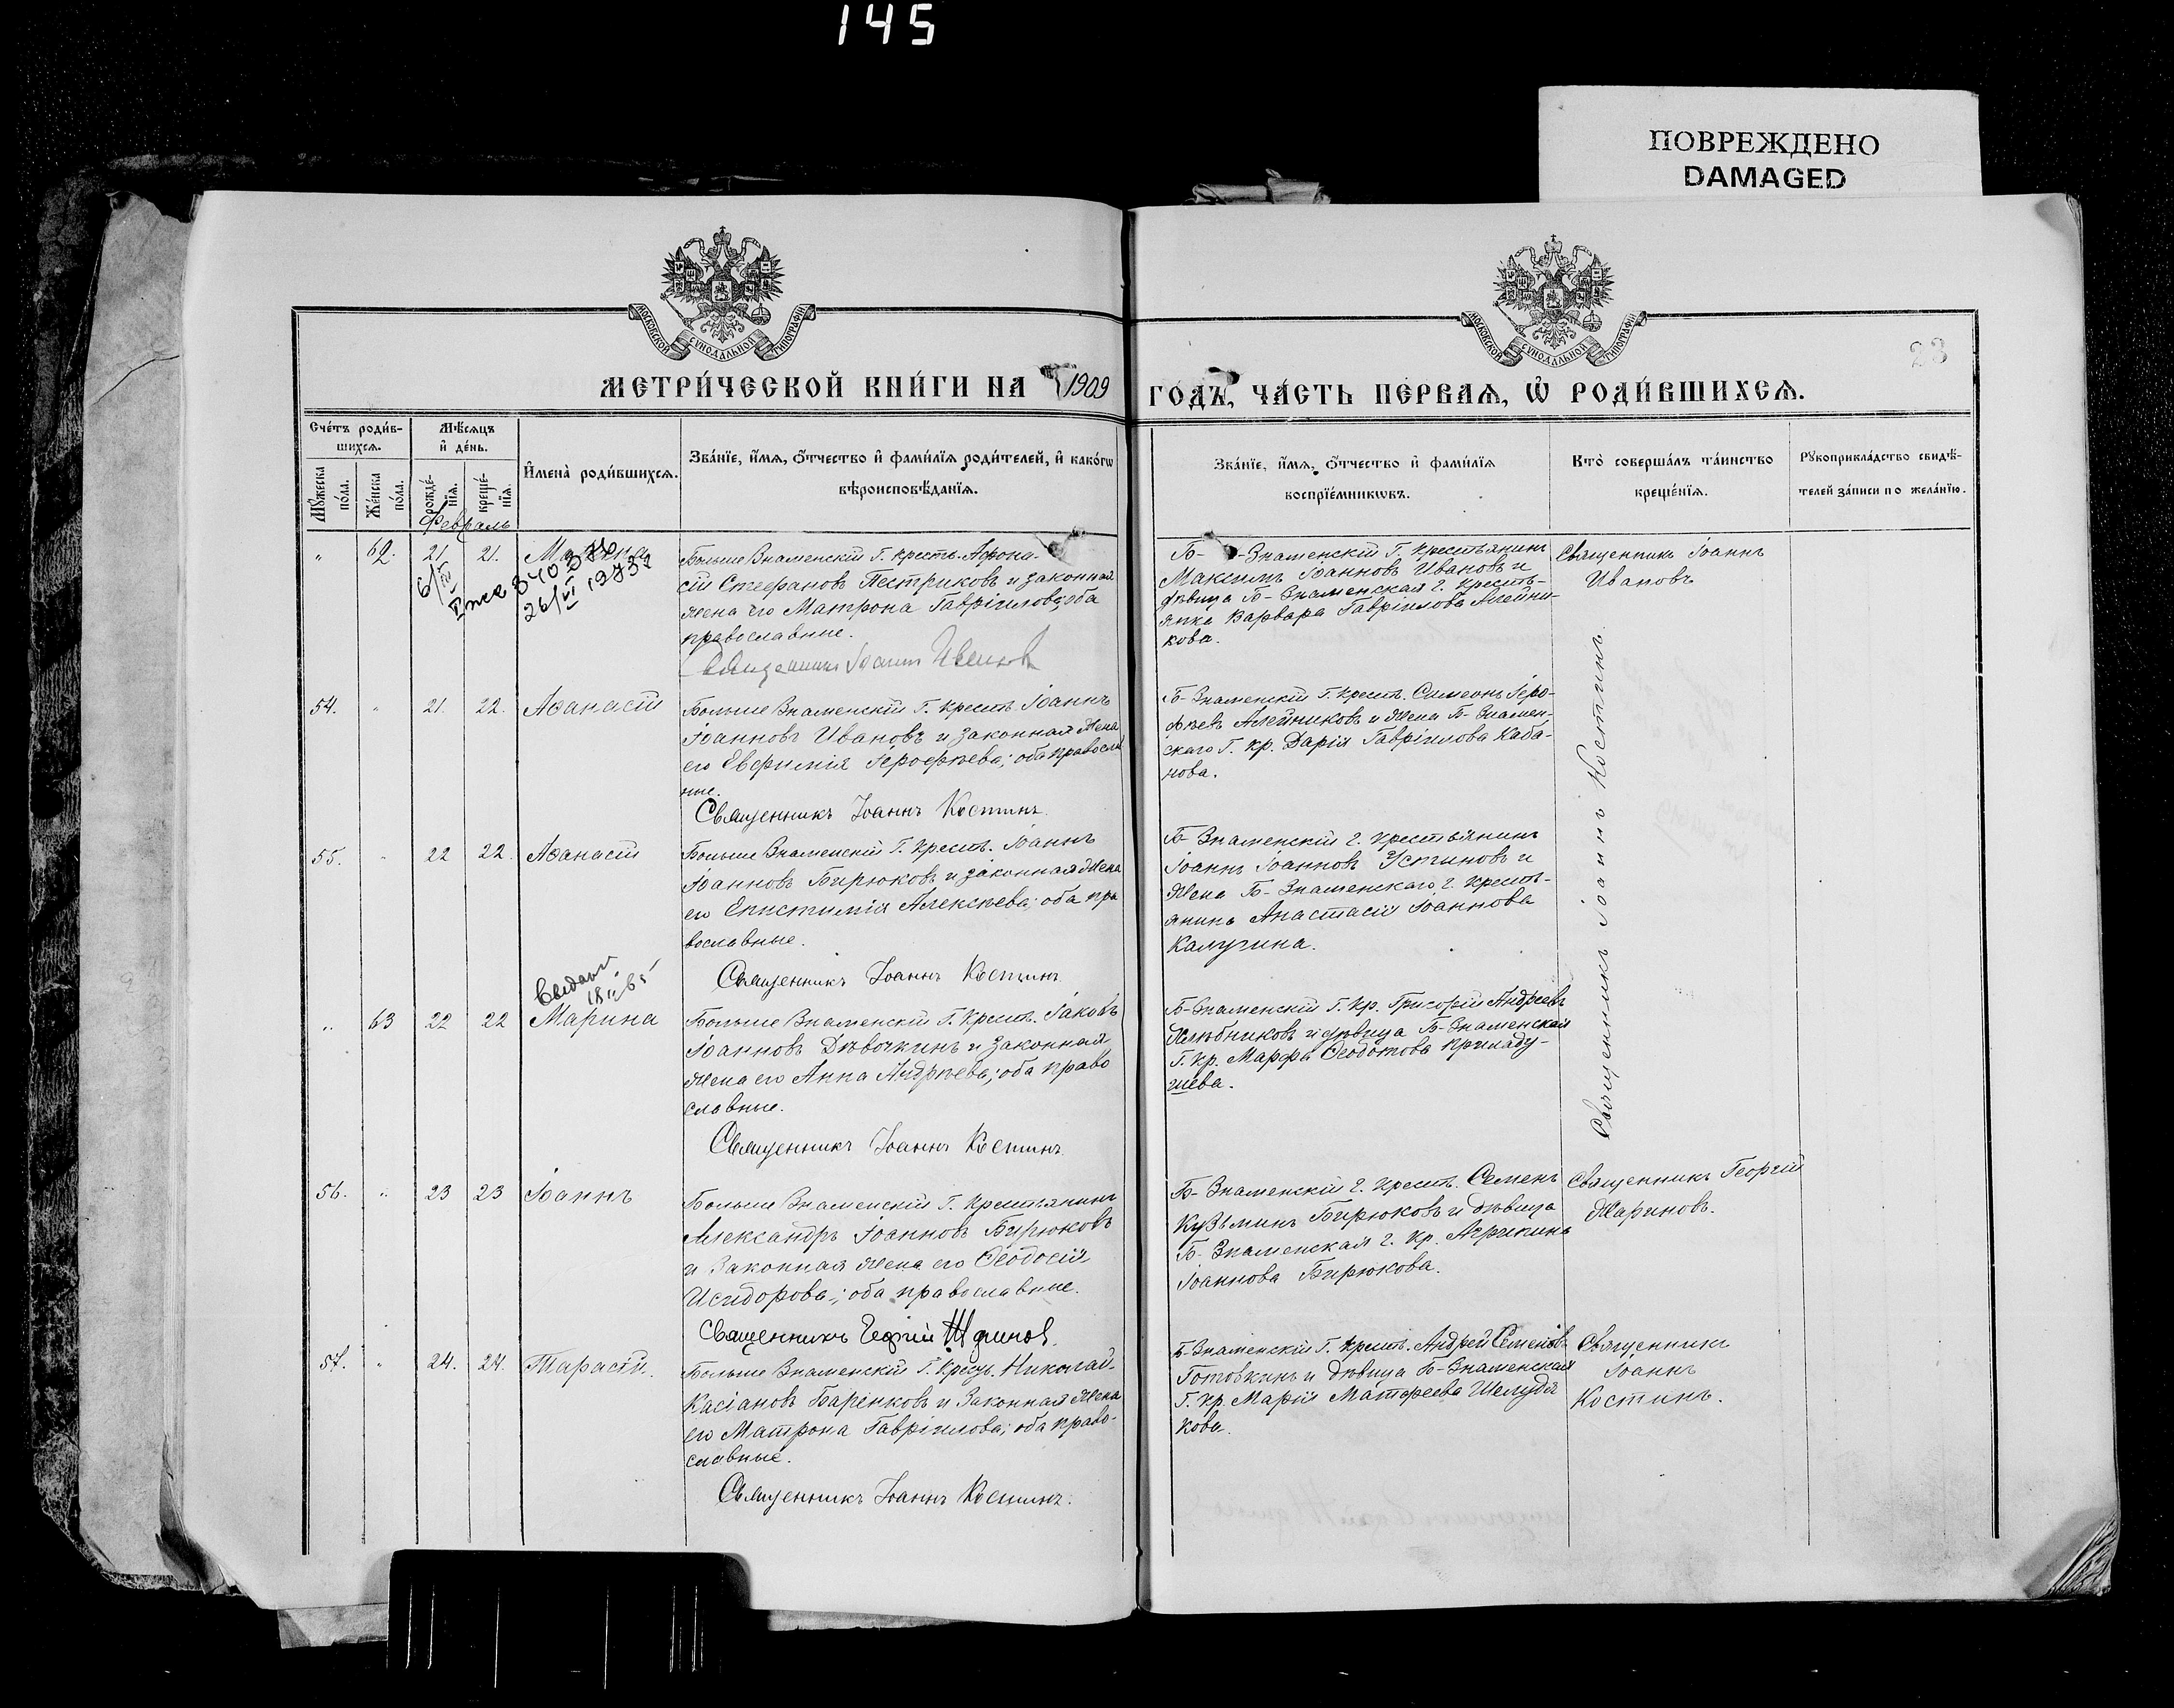 145
ПОВРЕЖДЕНО
DAMAGED
МОСКОВСКОЙ СѴНОДАЛЬНОЙ ТИПОГРАФІИ
МОСКОВСКОЙ СѴНОДАЛЬНОЙ ТИПОГРАФІИ
23
МЕТРИ́ЧЕСКОЙ КНИ́ГИ НА 1909
ГОДЪ, ЧА́СТЬ ПЕ́РВАѦ, Ѡ РОДИ́ВШИХСѦ.
Сче́тъ роди́в-
шихсѧ.
Мꙋ́жеска
по́ла.
Же́нска
по́ла.
Мѣ́сѧцъ
и҆ де́нь.
рожде́-
нїѧ.
креще́-
нїѧ.
И҆мена̀ роди́вшихсѧ.
Зва́нїе, и҆́мѧ, ѻ҆́тчество и҆ фами́лїѧ роди́телей, и҆ како́гѡ
вѣроисповѣ́данїѧ.
Зва́нїе, и҆́мѧ, ѻ҆́тчество и҆ фами́лїѧ
воспрїе́мникѡвъ.
Кто̀ соверша́лъ та́инство
креще́нїѧ.
Рꙋкоприкла́дство свидѣ́-
телей за́писи по жела́нїю.
Февраль
" 62. 21. 21.
26/VI 1973
Больше Знаменскій Г. крестъ. Афана-
сій Стефановъ Пестриковъ и законная
жена его Матрона Гавріилова; оба
православные.
Священникъ Іоаннъ Ивановъ
Б- -Знаменскій Г. крестьянинъ
Максимъ Іоанновъ Ивановъ и
дѣвица Б-Знаменская г. кресть-
янка Варвара Гавріилова Алейни-
кова.
Священникъ Іоаннъ
Ивановъ
54. " 21. 22. Аѳанасій
Больше Знаменскій Г. крестъ Іоаннъ
Іоанновъ Ивановъ и законная жена
его Евфимія Іерофѣева; оба правосла
ные.
Священникъ Іоаннъ Костинъ
Б-Знаменскій Г. крест. Симеонъ Іеро-
фѣевъ Алейниковъ и жена Б-Знамен-
скаго Г. кр. Дарія Гавріилова Каба-
нова.
Священникъ Іоаннъ Костинъ
55. " 22 22. Аѳанасій
Больше Знаменскій Г. крест. Іоаннъ
Іоанновъ Бирюковъ и законная жена
его Епистимія Алексѣева; оба пра
вославные.
Священникъ Іоаннъ Костинъ
Б-Знаменскій г. крестьянинъ
Іоаннъ Іоанновъ Устиновъ и
жена Б-Знаменскаго г. кресть-
янина Анастасія Іоаннова
Калугина.
" 63 22 22 Марина
Больше Знаменскій Г. крест. Іаковъ
Іоанновъ Дѣвочкинъ и законная
жена его Анна Андрѣева; оба право
славные.
Священникъ Іоаннъ Костинъ
Б-Знаменскій Г. кр. Григорій Андреевъ
Хлѣбниковъ и дѣвица Б-Знаменская
Г. кр. Марфа Ѳеодотова
шева.
56. " 23 23 Іоаннъ
Больше Знаменскій Г. крестьянинъ
Александръ Іоанновъ Бирюковъ
и законная жена его Ѳеодосія
Исидорова; оба православные.
Священникъ Георгій Жариновъ.
Б-Знаменскій г. крест. Семенъ
Кузьминъ Бирюковъ и дѣвица
Б-Знаменская г. кр. Агрипина
Іоаннова Бирюкова.
Священникъ Георгій
Жариновъ.
57. " 24. 24. Тарасій.
Больше Знаменскій Г. крест. Николай
Касіановъ Баренковъ и законная жена
его Матрона Гавріилова; оба право-
славные.
Священникъ Іоаннъ Костинъ.
Б-Знаменскій Г. крест. Андрей Семенов
Готовкинъ и дѣвица Б-Знаменская
Г. кр. Марія Матфеева Шелудя
кова.
Священникъ
Іоаннъ
Костинъ.